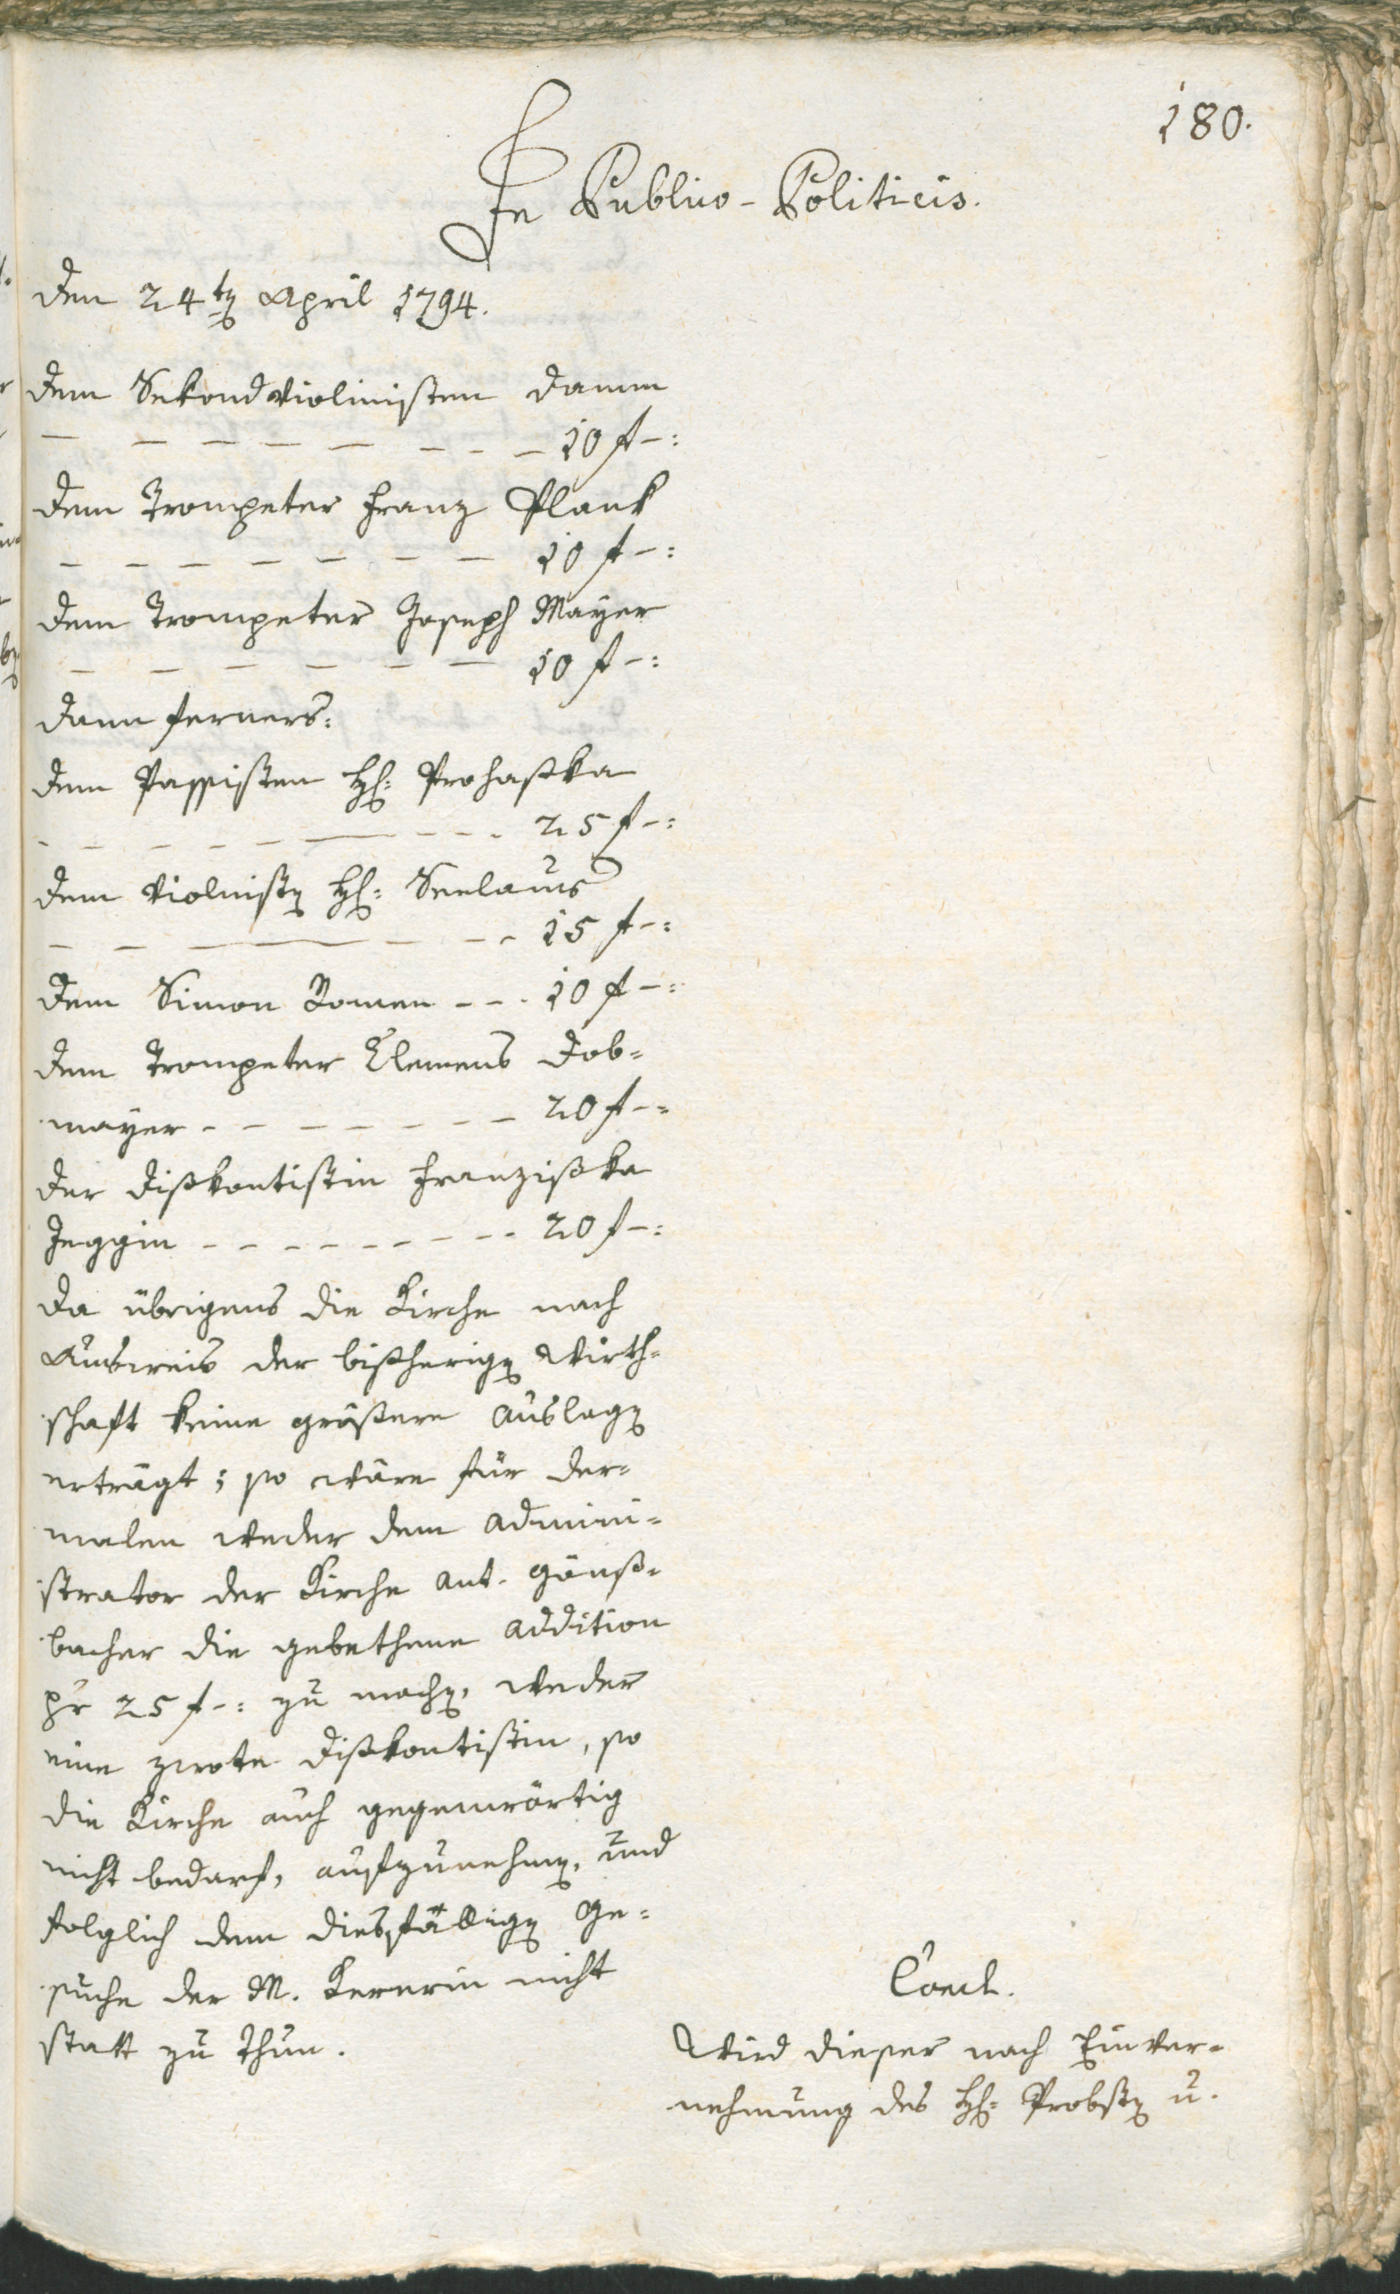 180.
In Publico-Politicis.
Den 24tn April 1794.
Dem Sekondviolinisten Damm
— — — — — — - - — 10 f –:
Dem Trompeter Franz Plank
— — — — — — — 10 f –:
Dem Trompeter Joseph Mayer
— — — — — — 10 f –:
Dann ferners:
Dem Passisten H: Prohaska
- - — — — — - - - 25 f –:
Dem Violinistn H: Seelaus
— — — — - - 15 f –:
Dem Simon Romen - - - 10 f –:
Dem Trompeter Clemens Dob=
mayer - - - - - - — 20 f –:
Der Diskantistin Franziska
Jeggin - - - - - - - - - 20 f –:
Da übrigens die Kirche nach
Ausweis der bisherign Wirth=
schaft keine größere Auslagn
erträgt; so wäre für der=
malen weder dem Admini=
strator der Kirche Ant. Gäns=
bacher die gebethene Addition
pr 25 f –: zu machn, weder
eine zwote Diskantistin, so
die Kirche auch gegenwärtig
nicht bedarf, aufzunehmn, und
folglich dem diesfällign Ge=
suche der M. Kererin nicht
statt zu thun.
Concl.
Wird dieser nach Einver=
nehmung des H: Probstn u.